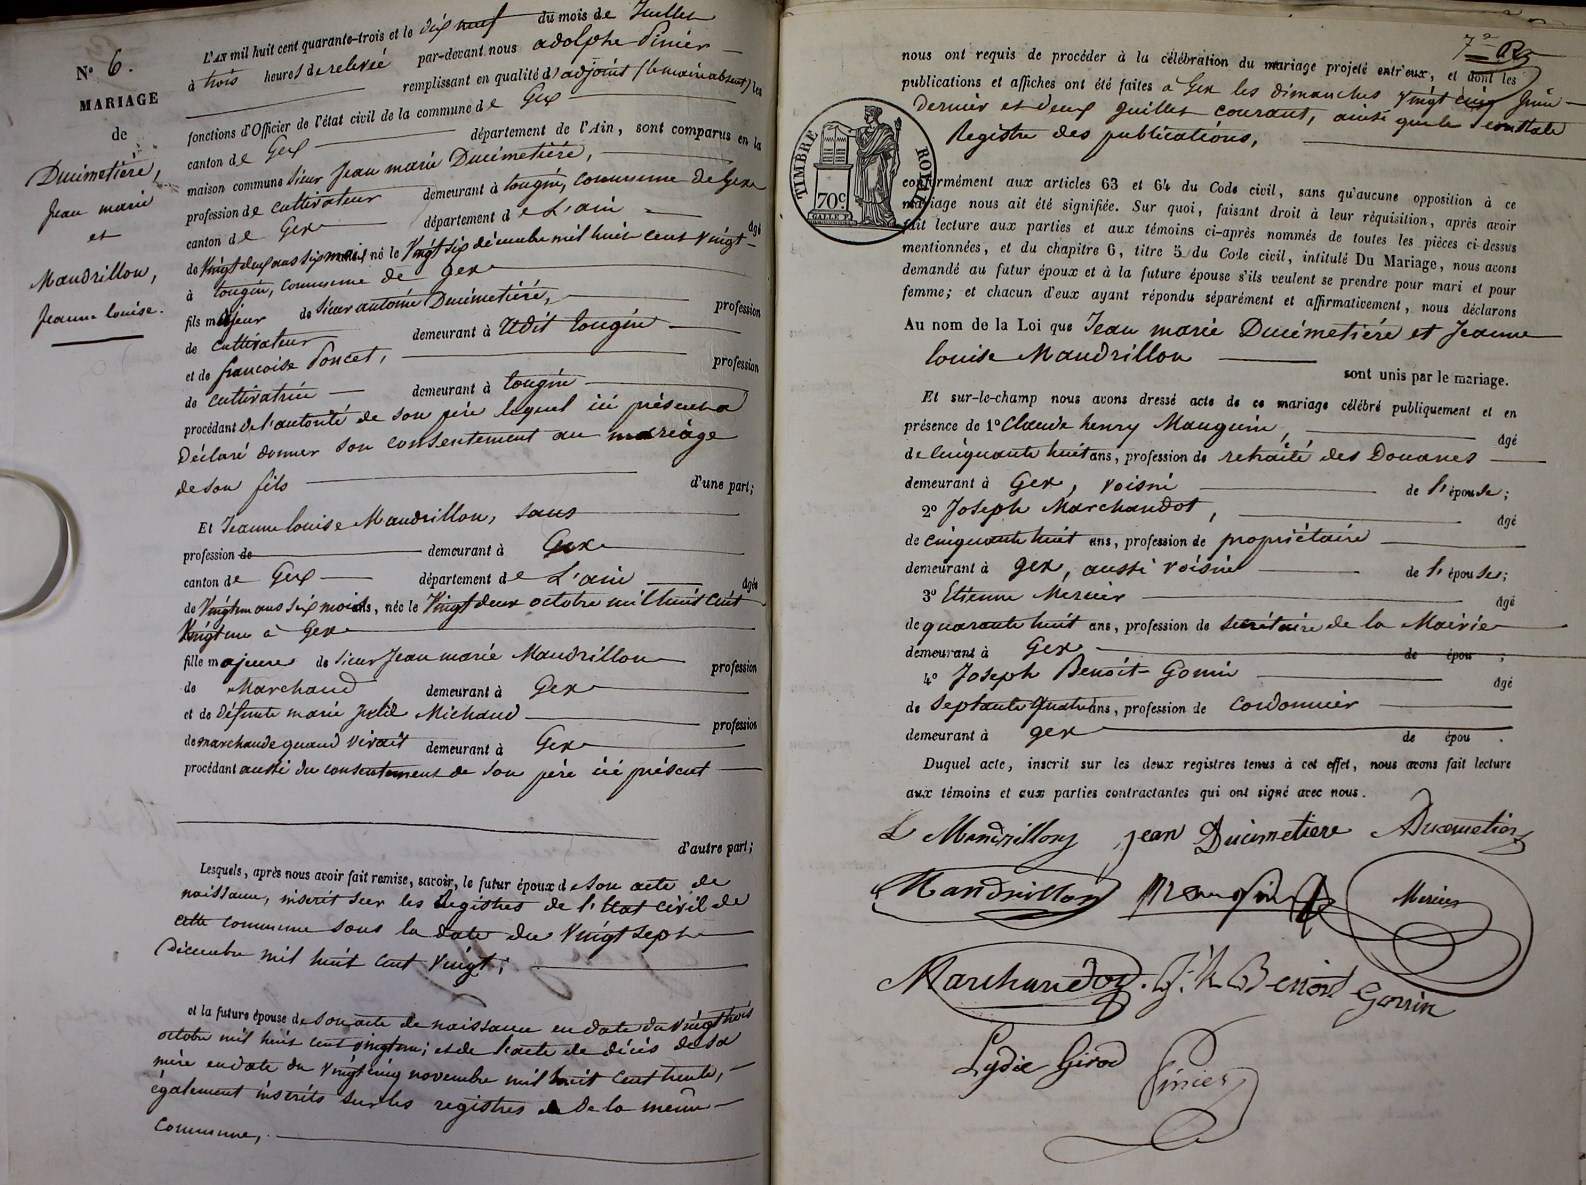 N° 6.
MARIAGE
de
Ducimetière,
Jean marie
et
Mandrillon,
Jeanne Louise.
L'AN mil huit cent quarante-trois et le dix neuf du mois de Juillet
à trois heures de relevée par-devant nous adolphe Pinier
remplissant en qualité d'adjoint (le maire absent) les
fonctions d'Officier de l'état civil de la commune de Gex
canton de Gex département de l'Ain, sont comparus en la
maison commune Sieur Jean marie Ducimetière,
profession de cultivateur demeurant à tougin, commune de Gex
canton de Gex département de L'ain âgé
de Vingt deux ans six mois, né le Vingt six décembre mil huit cent vingt
à tougin, commune de Gex
fils majeur de Sieur antoine Ducimetière, profession
de cultivateur demeurant à Udit tougin
et de francoise Poncet, profession
de cultivatrice demeurant à tougin
procédant de l'autorité de son père lequel ici présent a
Déclaré donner son consentement au mariage
de son fils d'une part;
Et Jeanne louise Mandrillon, sans
profession de demeurant à Gex
canton de Gex département de L'ain âgée
de Vingt un ans six mois ans, née le Vingt deux octobre mil huit cent
Vingt un à Gex
fille majeure de Sieur Jean marie Mandrillon profession
de Marchand demeurant à Gex
et de Défunte marie Michaud profession
de marchande quand vivait demeurant à Gex
procédant aussi du consentement de son père ici présent
d'autre part;
Lesquels, après nous avoir fait remise, savoir, le futur époux de son acte de
naissance, inscrit sur les Registres de l'Etat civil de
cette commune sous la date du Vingt sept
Décembre mil huit cent vingt;
et la future épouse de son acte de naissance en date du vingt trois
octobre mil huit cent vingt un; et de l'acte de décès de sa
mère en date du vingt cinq novembre mil huit cent trente,
également inscrits sur les registres de la même
commune,
7
nous ont requis de procéder à la célébration du mariage projeté entr'eux, et dont les
publications et affiches ont été faites à Gex les dimanches vingt cinq Juin
dernier et deux Juillet courant, ainsi que le constate
Registre des publications,
TIMBRE ROYAL
70c.
conformément aux articles 63 et 64 du Code civil, sans qu'aucune opposition à ce
mariage nous ait été signifiée. Sur quoi, faisant droit à leur réquisition, après avoir
fait lecture aux parties et aux témoins ci-après nommés de toutes les pièces ci-dessus
mentionnées, et du chapitre 6, titre 5 du Code civil, intitulé Du Mariage, nous avons
demandé au futur époux et à la future épouse s'ils veulent se prendre pour mari et pour
femme; et chacun d'eux ayant répondu séparément et affirmativement, nous déclarons
Au nom de la Loi que Jean marie Ducimetière et Jeanne
louise Mandrillon
sont unis par le mariage.
Et sur-le-champ nous avons dressé acte de ce mariage célébré publiquement et en
présence de 1° Claude henry Mauguin, âgé
de Cinquante huit ans, profession de retraité des Douanes
demeurant à Gex, voisin de l'épouse;
2° Joseph Marchandot, âgé
de cinquante huit ans, profession de propriétaire
demeurant à gex, aussi voisin de l'épouse;
3° Etienne Mercier âgé
de quarante huit ans, profession de secrétaire de la Mairie
demeurant à Gex de épou ;
4° Joseph Benoit Gonin âgé
de Septante quatre ans, profession de cordonnier
demeurant à gex de épou .
Duquel acte, inscrit sur les deux registres tenus à cet effet, nous avons fait lecture
aux témoins et aux parties contractantes qui ont signé avec nous.
L Mandrillon Jean Ducimetiere ADucimetier
Mandrillon Mauguin Mercier
Marchandot. Benoit Gonin
Lydie Girod Pinier